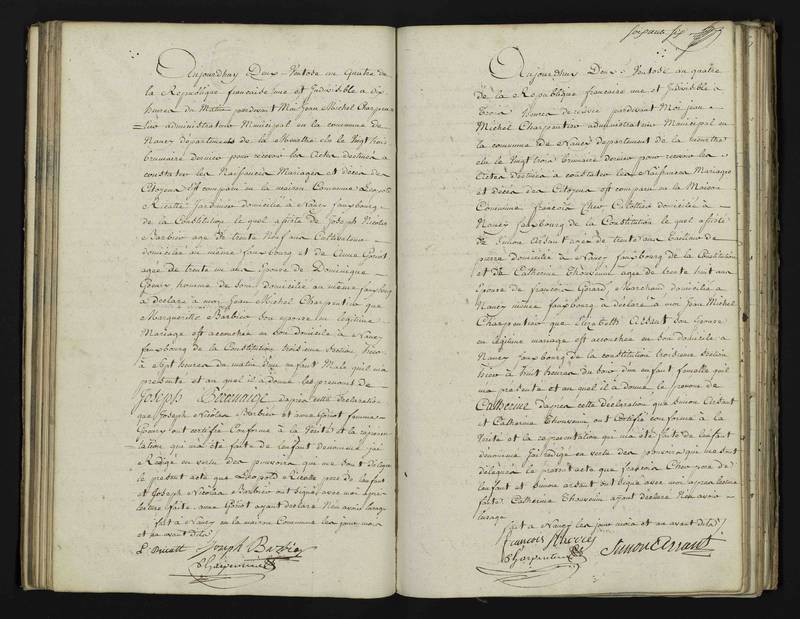 Aujourdhuy Deux Ventose an Quatre de
la Republique francaise une et Indivisible a dix
heures du Matin pardevant Moi Jean Michel Charpen
tier administrateur Municipal en la commune de
Nancy departement de la Meurthe elu le Vingt trois
brumaire dernier pour recevoir les Actes destinés a
constater les Naissances Mariages et décès des
Citoyens est comparu en la maison Commune Leopold
jardinier domicilié a Nancy fauxbourg
de la Constitution lequel assisté de Joseph Nicolas
Barbier agé de trente Neuf ans Cultivateur
domicilié au même fauxbourg et de Anne Goriot
agée de trente un ans Epouse de Dominique
Goury homme de loi domicilié au même fauxbourg
a declaré a moi Jean Michel Charpentier que
Marguerite Barbier son epouse en légitime
Mariage est accouchée en son domicile a Nancy
fauxbourg de la Constitution troisieme Section hier
a Sept heures du matin d'un enfant Male quil m'a
presenté et auquel il a donné les prenoms de
Joseph daprés cette declaration
que Joseph Nicolas Barbier et anne Goriot femme
Goury ont certifié Conforme a la Verité et la représen
tation qui m'a été faite de lenfant denommé jai
Rédigé en vertu des pouvoirs qui me sont délégués
le present acte que Leopold pere de lenfant
et Joseph Nicolas Barbier ont signé avec moi apres
lecture faite. anne Goriot ayant declaré Nen avoir lusage
fait a Nancy en la maison Commune les jour mois
et an avant dits
Joseph Barbier
Charpentier
soixante six
Aujourdhuy Deux Ventose an quatre
de la Republique francaise une et Indivisible a
trois heures de relevée pardevant Moi jean
Michel Charpentier administrateur Municipal en
la commune de Nancy departement de la meurthe
elu le Vingt trois Brumaire dernier pour recevoir les
Actes destinés a constater les Naissances Mariages
et décès des Citoyens est comparu en la Maison
Commune francois domicilié a
Nancy fauxbourg de la Constitution lequel assisté
de Simon agé de trente ans tailleur de
pierre domicilié a Nancy fauxbourg de la Constitution
et de Catherine Thouvenin agée de trente huit ans
Epouse de francois Gerard Marchand domicilié a
Nancy même fauxbourg a declaré a moi Jean Michel
Charpentier que Elizabeth son Epouse
en légitime mariage est accouchée en son domicile a
Nancy fauxbourg de la constitution troisieme Section
hier a huit heures du soir d'un enfant femelle quil
m'a présenté et auquel il a donné le prenom de
Catherine daprés cette déclaration que Simon
et Catherine Thouvenin ont Certifié conforme a la
Verité et la représentation qui m'a été faite de lenfant
denommé jai Rédigé en vertu des pouvoirs qui me sont
délégués le présent acte que francois pere de
lenfant et Simon ont Signé avec moi apres lecture
faite. Catherine Thouvenin ayant déclaré Nen avoir
lusage
fait a Nancy les jour mois et an avant dits
francois
Charpentier
Simon